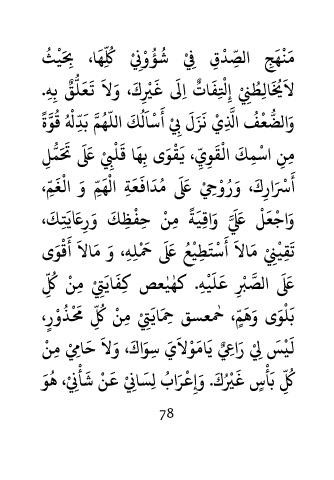 مَنْهَجِ الصِّدْقِ فِيْ شُؤُوْنِيْ كُلِّهَا، بِحَيْثُ
لاَيُخَالِطُنِيْ إِلْتِفَاتٌ اِلَى غَيْرِكَ، وَلاَ تَعَلُّقٌ بِهِ.
وَالضُّعْفُ الَّذِيْ نَزَلَ بِيْ أَسْأَلُكَ اللهُمَّ بَدِّلْهُ قُوَّةً
مِنِ اسْمِكَ الْقَوِيِّ، يَقْوَى بِهَا قَلْبِيْ عَلَى تَحَمُّلِ
أَسْرَارِكَ، وَرُوْحِيْ عَلَى مُدَافَعَةِ الْهَمِّ وَ الْغَمِّ،
وَاجْعَلْ عَلَيَّ وَاقِيَةً مِنْ حِفْظِكَ وَرِعَايَتِكَ،
تَقِيْنِيْ مَالاَ أَسْتَطِيْعُ عَلَى حَمْلِهِ، وَ مَالاَ أَقْوَى
عَلَى الصَّبْرِ عَلَيْهِ. كهٰيٰعص كِفَايَتِيْ مِنْ كُلِّ
بَلْوَى وَهَمٍّ، حٰمعسق حِمَايَتِيْ مِنْ كُلِّ مَحْذُوْرٍ،
لَيْسَ لِيْ رَاعِيٌ يَامَوْلاَيَ سِوَاكَ، وَلاَ حَامِيْ مِنْ
كُلِّ بَأْسٍ غَيْرُكَ. وَإِعْرَابُ لِسَانِيْ عَنْ شَأْنِيْ، هُوَ
78